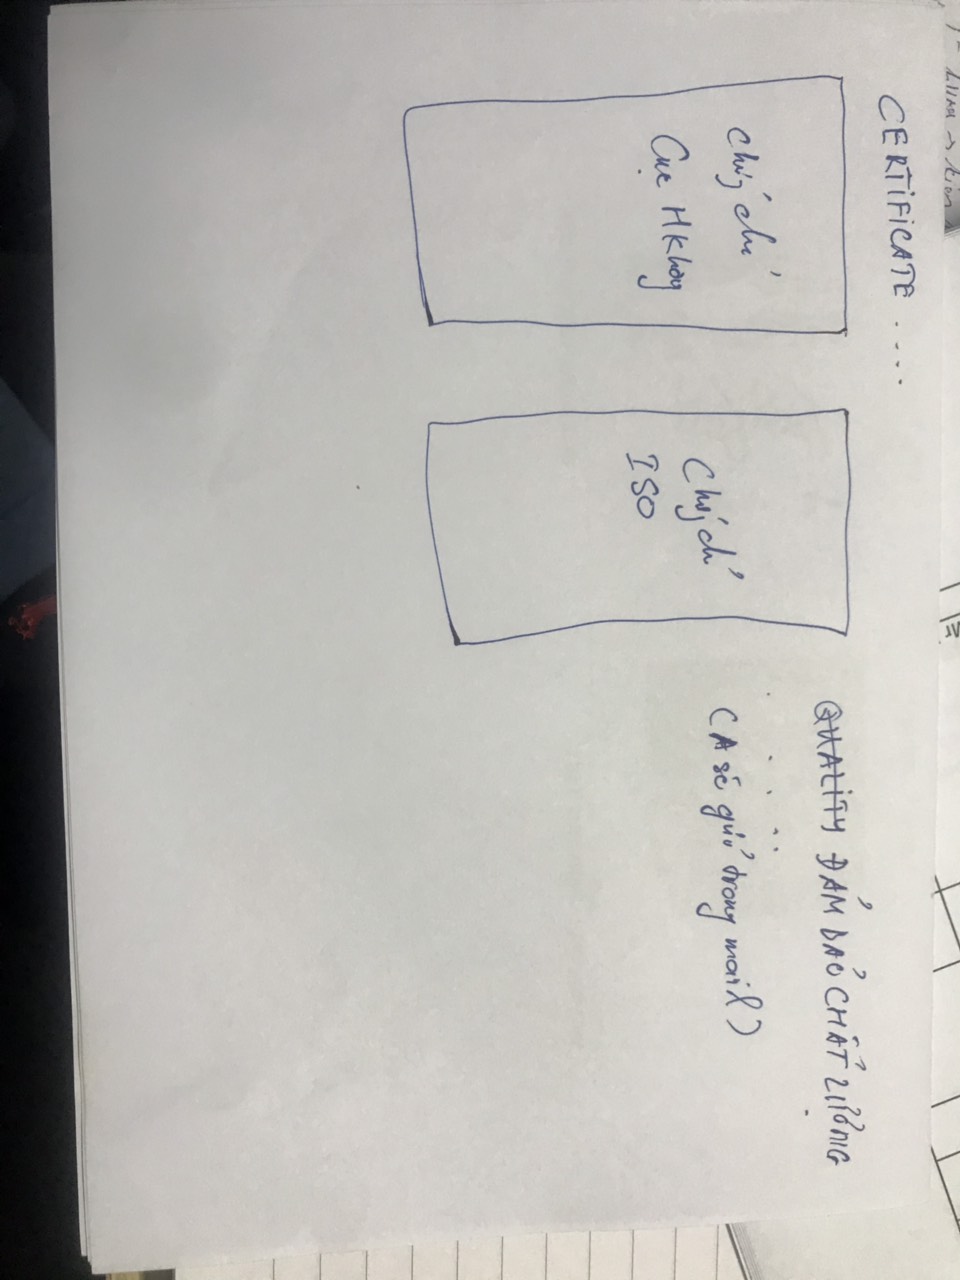 CERTIFICATE ....
Chứng chỉ
Cục HKhông
Chứng chỉ
ISO
QUALITY ĐẢM BẢO CHẤT LƯỢNG
(A sẽ gửi trong mail)